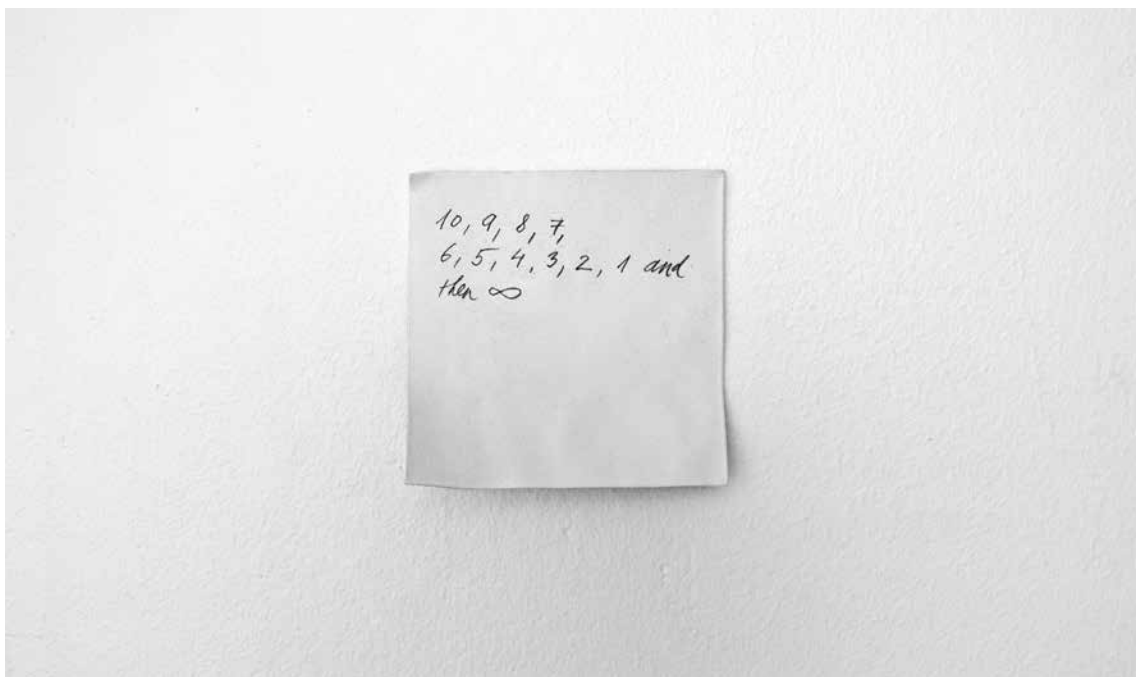 10, 9, 8, 7,
6, 5, 4, 3, 2, 1 and
then ∞